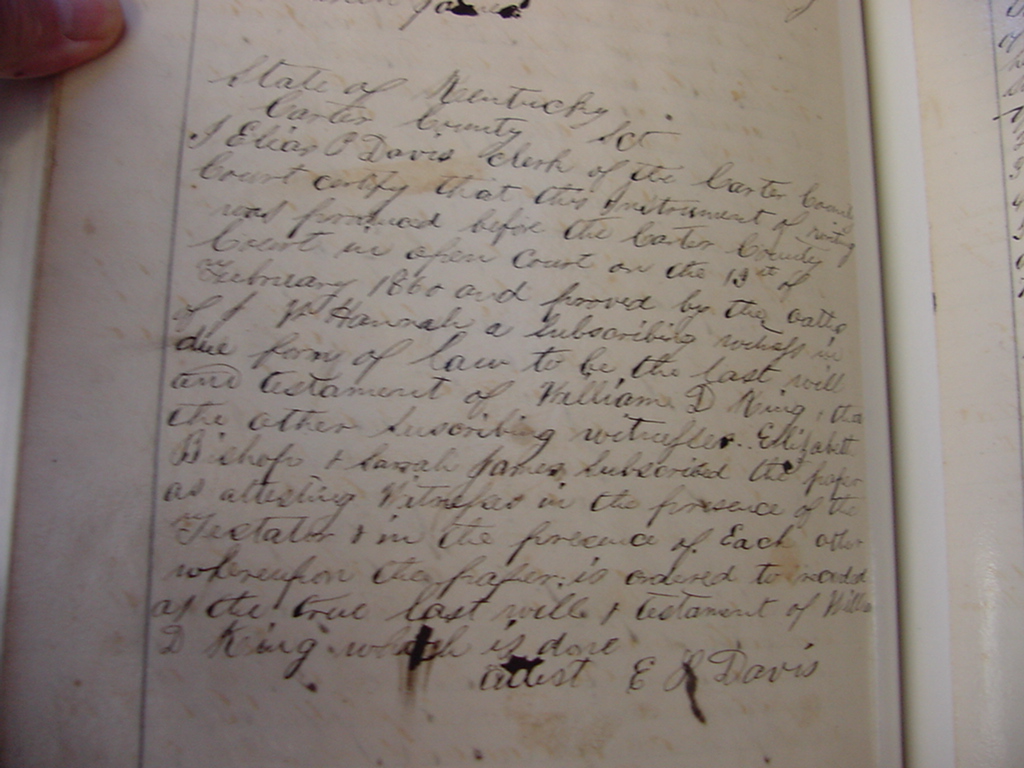 State of Kentucky
Carter County Sct
I Elias P Davis Clerk of the Carter County
Court certify that this instrument of writing
was produced before the Carter County
Court in open Court on the 13th of
February 1860 and proved by the oath
of Hannah a subscribing witness in
due form of law to be the last will
and testament of William D King, & that
the other subscribing witnesses Elizabeth
Bishop & Sarah James subscribed the paper
as attesting witnesses in the presence of the
Testator & in the presence of Each other
whereupon the paper is ordered to record
as the true last will & testament of Willia
D King which is done
attest E P Davis